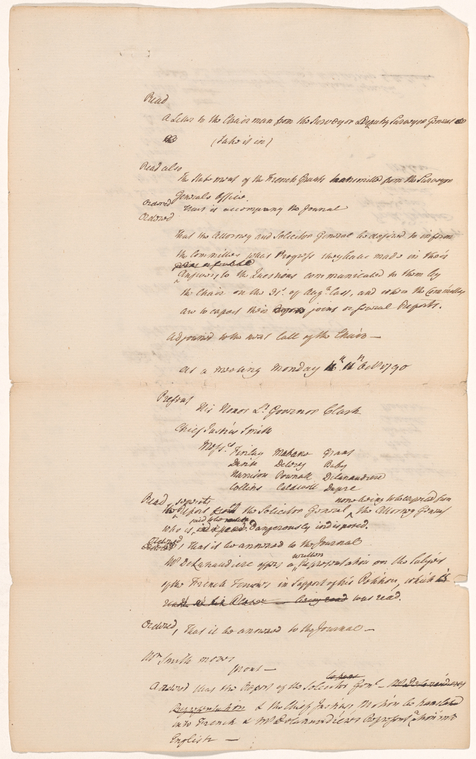 Read
A Letter to the Chairman from the Surveyor & Deputy Surveyor General
(Take it in)
Read also
The Statement of the French Grants transmitted from the Surveyor
General's Office.
Ordered
Ordered
accompany the Journal
That the Attorney and Solicitor General be desired to inform
the Committee what Progress they have made in their
Answers to the Questions communicated to them by
the Chair on the 31st of Augt last, and when the Committee
are to expect their joint or several Reports.
Adjourned to the next Call of the Chair —
At a meeting Monday 11th Octr 1790
Present
His Honor Lt Govenor Clark
Chief Justice Smith
Messrs Finlay Mabane Grant
Delery Baby
Harrison Pownall DeLanaudiere
Collins Caldwell Dupre
Read, separate none being to be expected from
Report the Solicitor General, the Attorney General
who is dangerously indisposed.
Ordered, That it be annexed to the Journal
Mr DeLanaudiere offers a written Representation on the Subject
of the French Tenures in Support of his Petition, which is
was read.
Ordered, That it be annexed to the Journal —
Mr Smith moves
Agreed that the Report of the Solicitor Genl
Representation & the Chief Justice's Motion be translated
into French & Mr DeLanaudiere's Representn into
English —